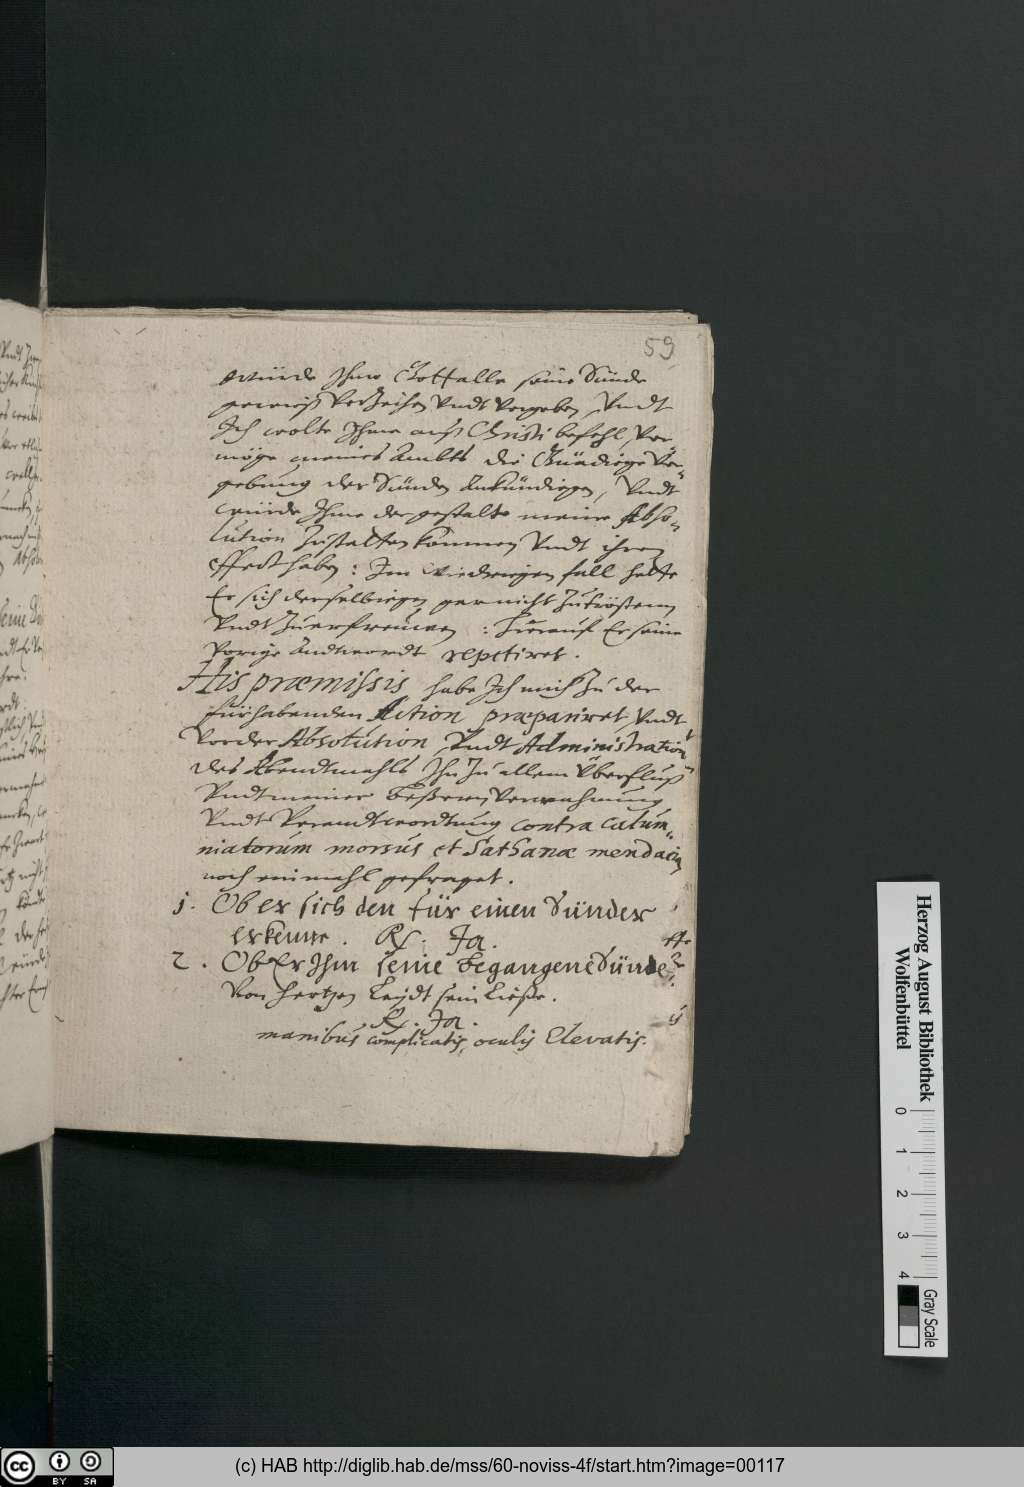 59
würde Ihme Gott alle seine Sünde
gewiß verzeihen undt vergeben, Undt
Ich wolte Ihme auß Christi befehl, ver-
möge meines Ambts die Gnädige Ver-
gebung der Sünden Ankündigen, Undt
würde Ihme dergestalt meine Abso-
lution zustatten kommen undt ihren
effect haben: Im wiedrigen fall hette
Er sich derselbigen gar nicht zutrösten
undt zuerfreuwen: Hierauf Er seine
Vorige Andtwordt repetiret.
His præmissis habe Ich mich zu der
fürhabenden Action præpariret, Undt
vor der Absolution, Undt Administration
des Abendtmahls Ihn zu allem Überfluß
Undt meiner beßeren Verwahrung
Undt Verandtwordtung contra calum-
niatorum morsus et Sathanæ mendacia
noch einmahl gefraget.
1. Ob er sich den für einen Sünder
erkenne. Rx. Ja.
2. Ob Er Ihm seine begangene Sünde
Von Hertzen Leydt sein Ließe.
Rx. Ja.
manibus complicatis, oculis Elevatis.
Herzog August Bibliothek
Wolfenbüttel
0 1 2 3 4
Gray Scale
cc BY SA
(c) HAB http://diglib.hab.de/mss/60-noviss-4f/start.htm?image=00117